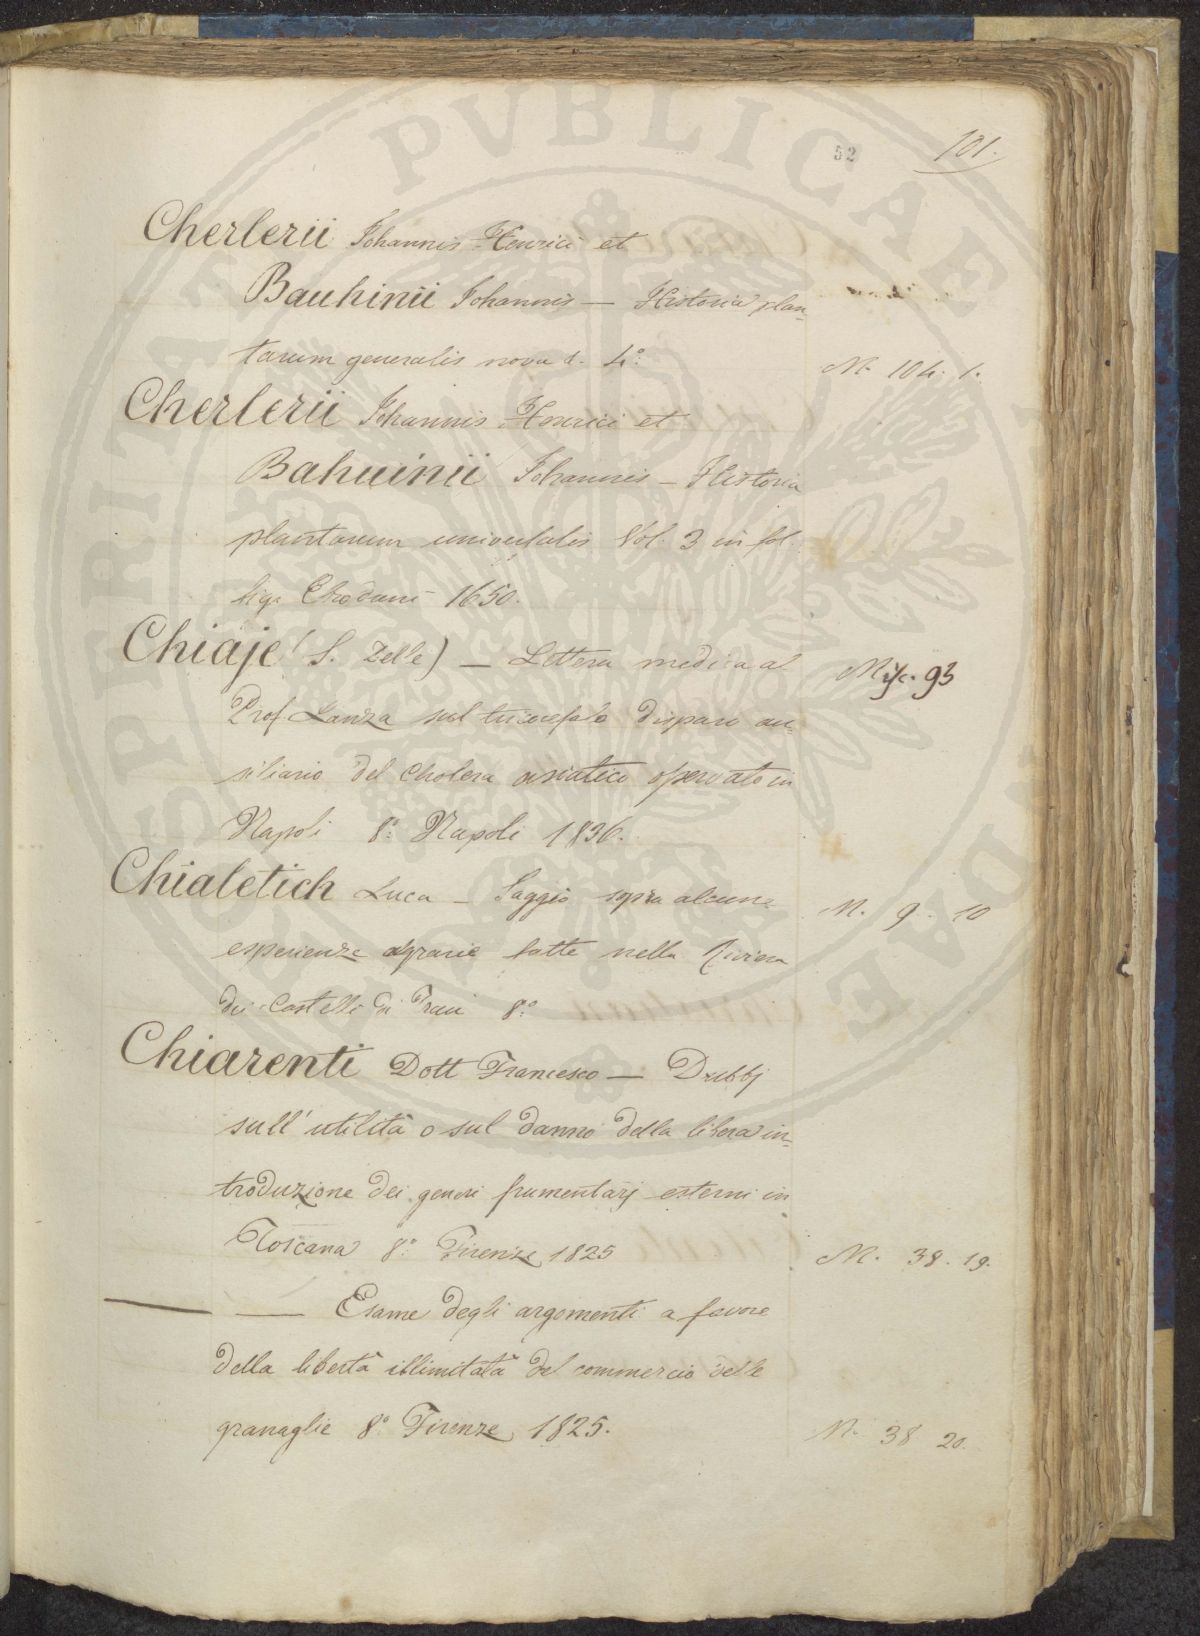 52 101.
Cherlerii Johannis Henrici et
Bauhinii Johannis — Historia plan-
tarum generalis nova &. 4°: M. 104. 1.
Cherlerii Johannis Henrici et
Bahuinii Johannis — Historia
plantarum universalis Vol. 3 in fol.
1650.
Chiaje (S. Delle) — Lettera medica al Misc. 93
Prof. Lanza sul tricocefalo disparo au-
siliario del Cholera asiatico osservato in
Napoli 8°: Napoli 1836.
Chialetich Luca — Saggio sopra alcune M. 9. 10
esperienze agrarie fatte nella Riviera
dei Castelli di Trau 8°
Chiarenti Dott Francesco — Dubbj
sull' utilità o sul danno della libera in-
troduzione dei generi frumentarj esterni in
Toscana 8°: Firenze 1825 M. 38. 19.
— Esame degli argomenti a favore
della libertà illimitata del commercio delle
granaglie 8° Firenze 1825. M. 38 20.
PROSPERITATI PVBLICAE AVGENDAE